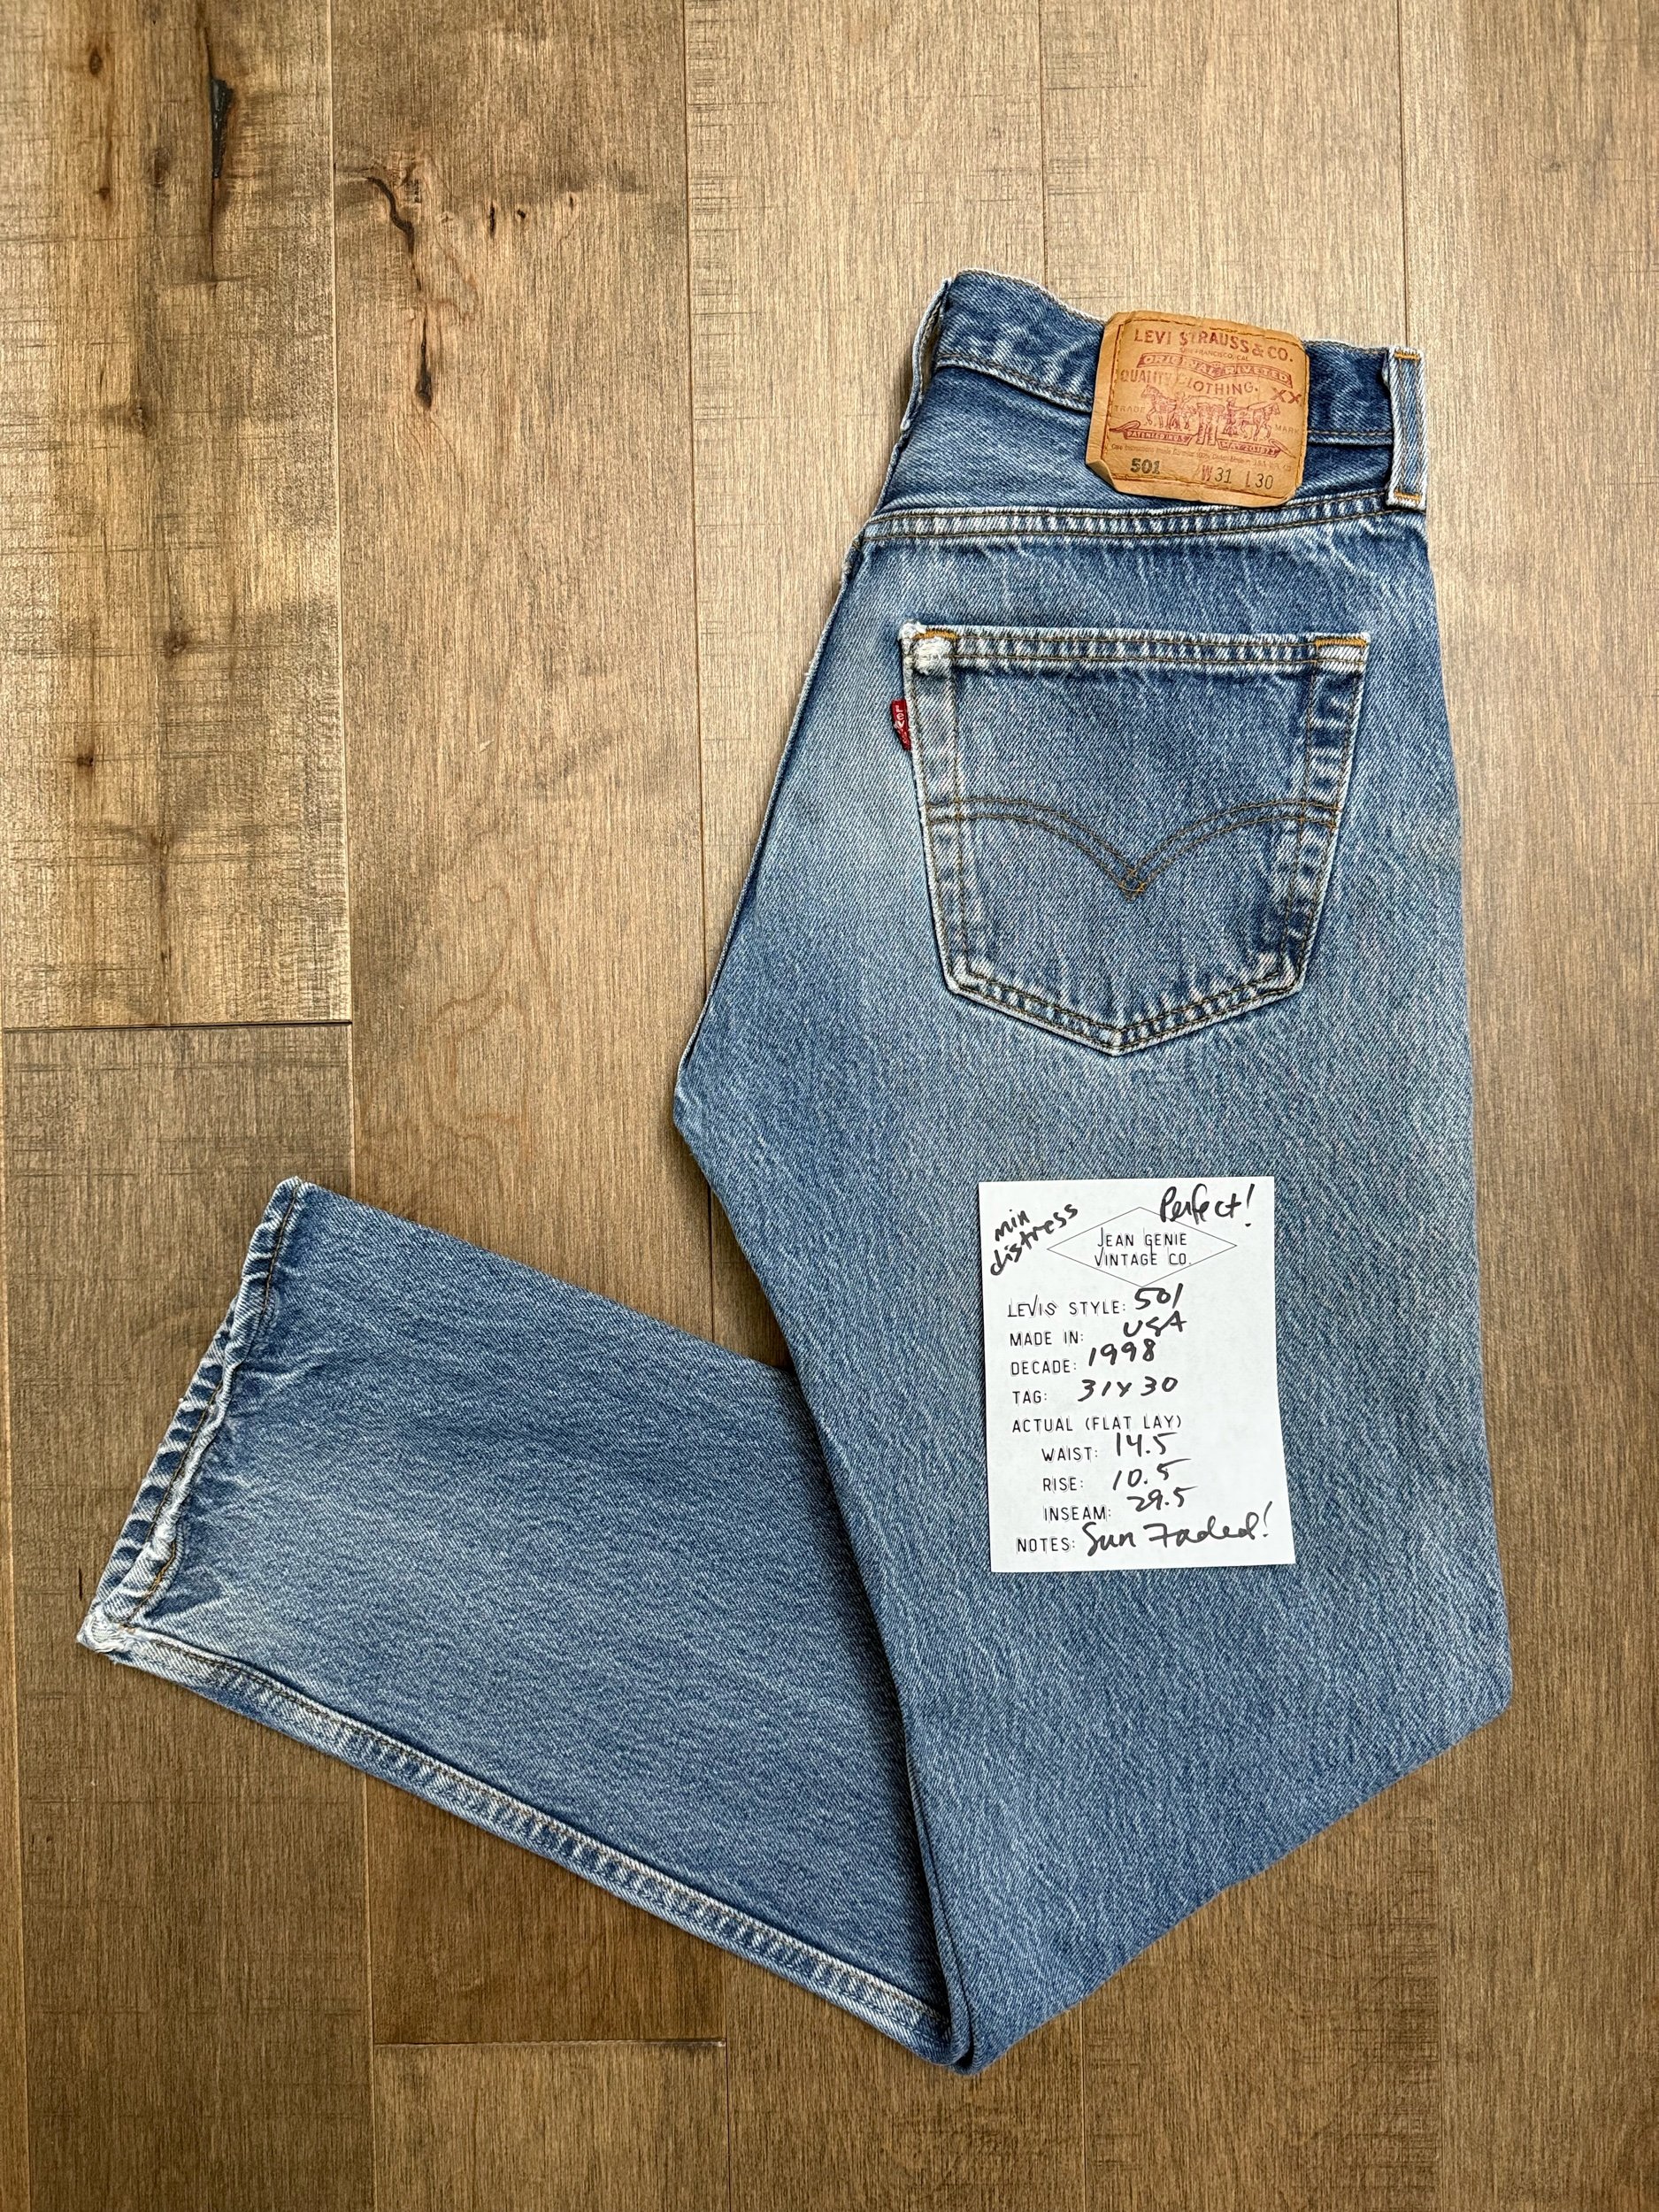 LEVI STRAUSS & CO.
SAN FRANCISCO, CAL.
ORIGINAL RIVETED
QUALITY CLOTHING.
XX
TRADE MARK
PATENTED IN U.S. MAY 20 1873
501 W 31 L 30
LEVI'S
min distress
Perfect!
JEAN GENIE
VINTAGE CO.
LEVIS STYLE: 501
MADE IN: USA
DECADE: 1998
TAG: 31x30
ACTUAL (FLAT LAY)
WAIST: 14.5
RISE: 10.5
INSEAM: 29.5
NOTES: Sun Faded!